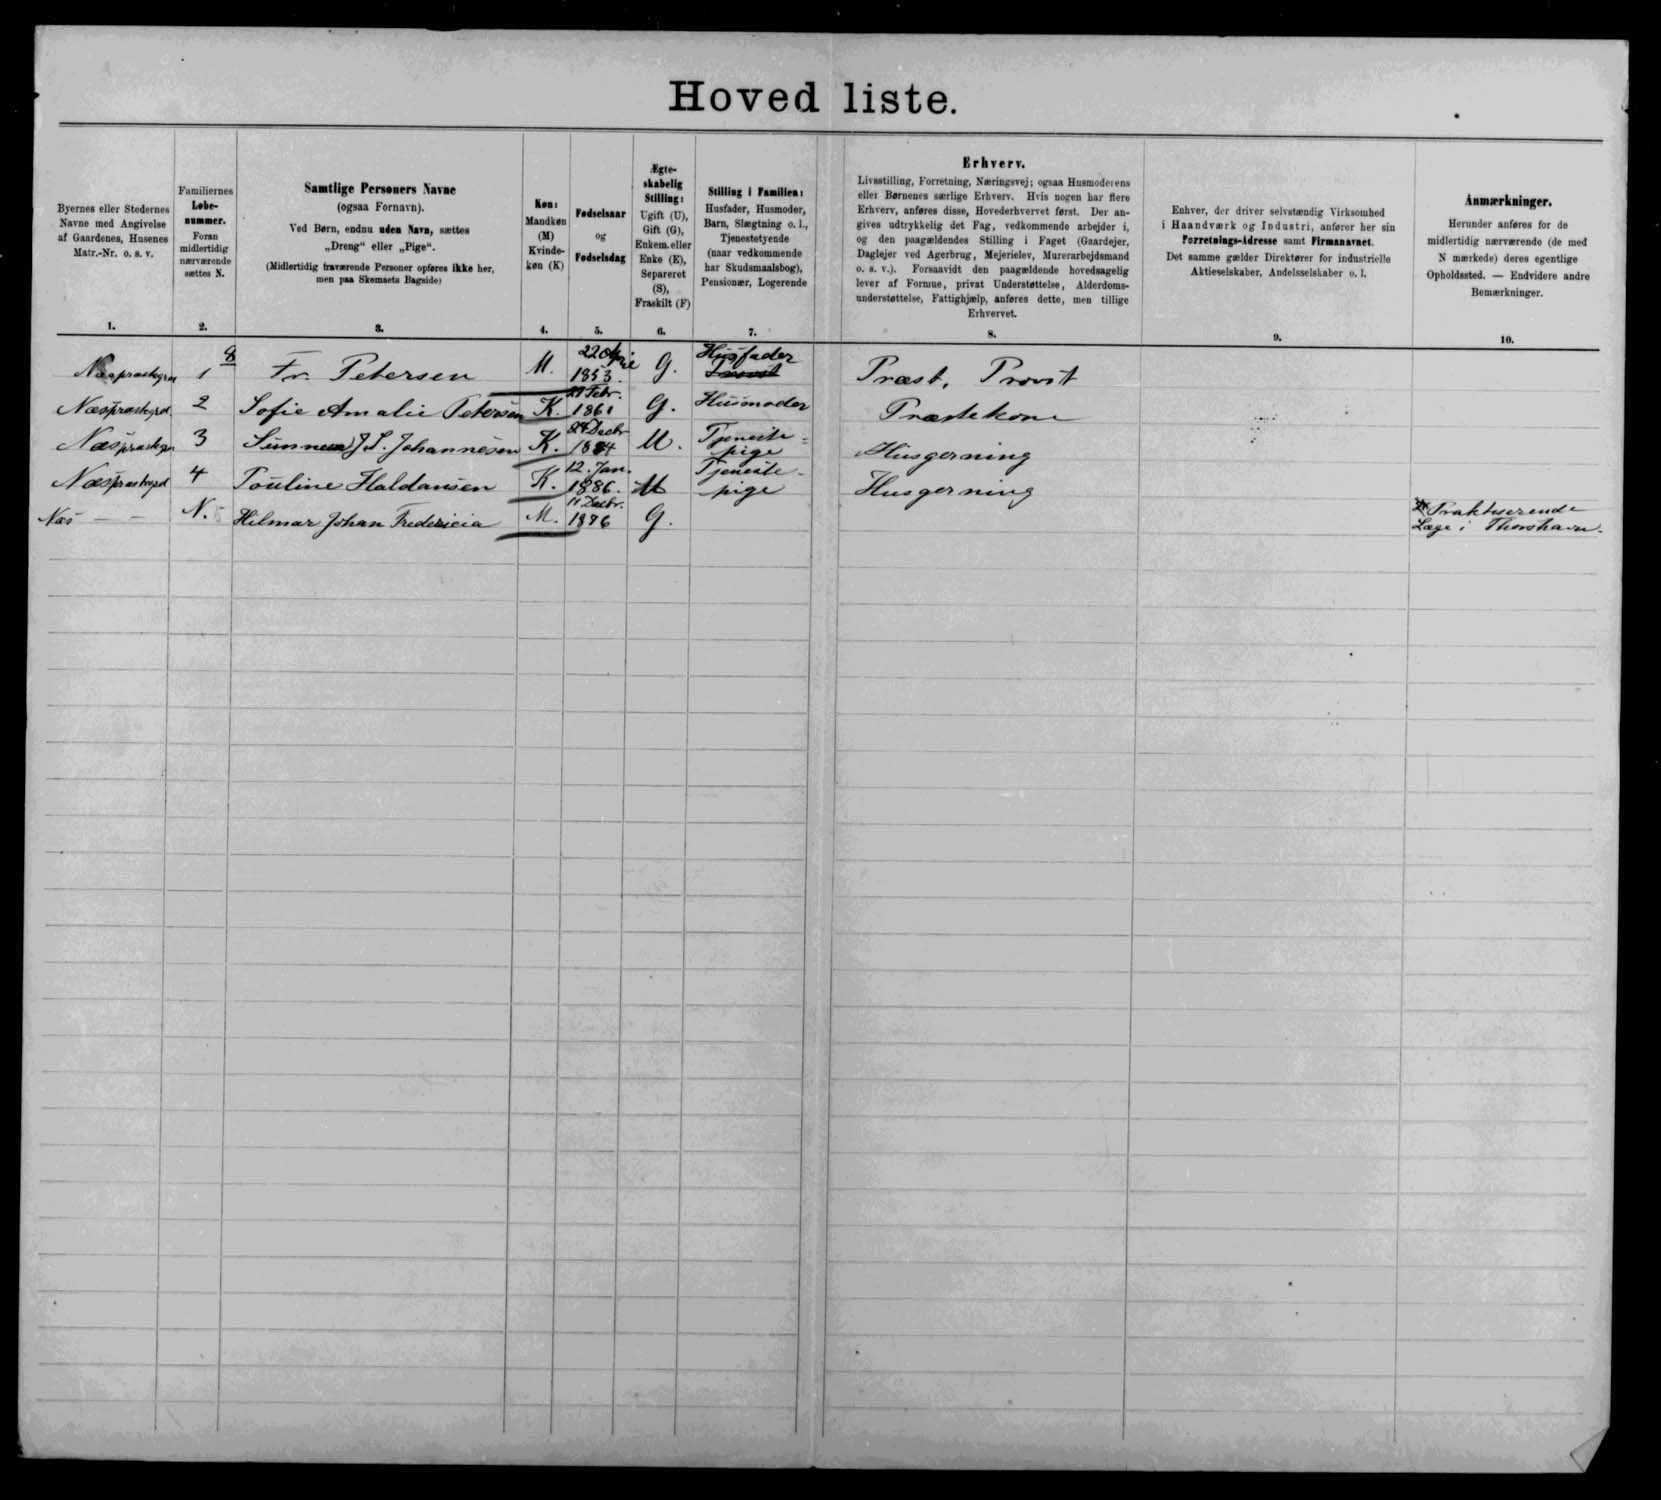 Hoved liste.
Byernes eller Stedernes
Navne med Angivelse
af Gaardenes, Husenes
Matr.-Nr. o. s. v.
1.
Familiernes
Løbe-
nummer.
Foran
midlertidig
nærværende
sættes N.
2.
Samtlige Personers Navne
(ogsaa Fornavn).
Ved Børn, endnu uden Navn, sættes
„Dreng“ eller „Pige“.
(Midlertidig fraværende Personer opføres ikke her,
men paa Skemaets Bagside)
3.
Køn:
Mandkøn
(M)
Kvinde-
køn (K)
4.
Fødselsaar
og
Fødselsdag
5.
Ægte-
skabelig
Stilling:
Ugift (U),
Gift (G),
Enkem. eller
Enke (E),
Separeret
(S),
Fraskilt (F)
6.
Stilling i Familien:
Husfader, Husmoder,
Barn, Slægtning o. l.,
Tjenestetyende
(naar vedkommende
har Skudsmaalsbog),
Pensionær, Logerende
7.
Erhverv.
Livsstilling, Forretning, Næringsvej; ogsaa Husmoderens
eller Børnenes særlige Erhverv. Hvis nogen har flere
Erhverv, anføres disse, Hovederhvervet først. Der an-
gives udtrykkelig det Fag, vedkommende arbejder i,
og den paagældendes Stilling i Faget (Gaardejer,
Daglejer ved Agerbrug, Mejerielev, Murerarbejdsmand
o. s. v.). Forsaavidt den paagældende hovedsagelig
lever af Formue, privat Understøttelse, Alderdoms-
understøttelse, Fattighjælp, anføres dette, men tillige
Erhvervet.
8.
Enhver, der driver selvstændig Virksomhed
i Haandværk og Industri, anfører her sin
Forretnings-Adresse samt Firmanavnet.
Det samme gælder Direktører for industrielle
Aktieselskaber, Andelsselskaber o. l.
9.
Anmærkninger.
Herunder anføres for de
midlertidig nærværende (de med
N mærkede) deres egentlige
Opholdssted. — Endvidere andre
Bemærkninger.
10.
1 Fr. Petersen M. 22 1853. G. Husfader Provst Præst, Provst
Næspræstegrd 2 Sofie Amalie Petersen K. Febr. G. Husmoder Præstekone
3 J S. Johannesen K. 24 Decbr U. Tjeneste=
pige Husgerning
Næspræstegrd 4 Pouline Haldansen K. 12. Jan.
1886. U Tjeneste-
pige Husgerning
Næs — — N. Hilmar Johan Fredericia M. 11 Decbr.
1876 G. Praktiserende
Læge i Thorshavn.